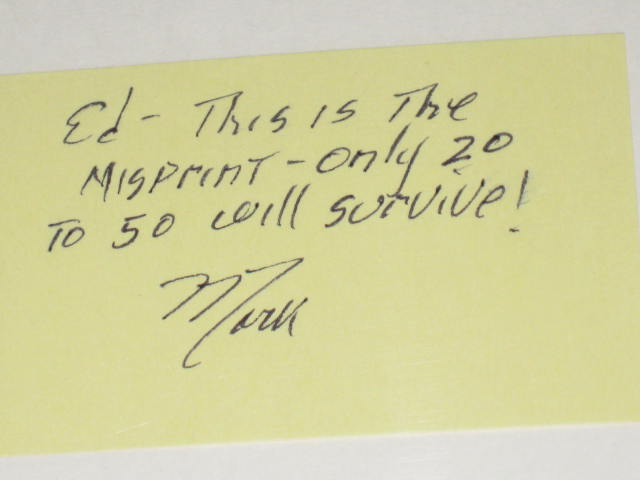 Ed - This is The
Misprint - only 20
To 50 will survive!
Mark